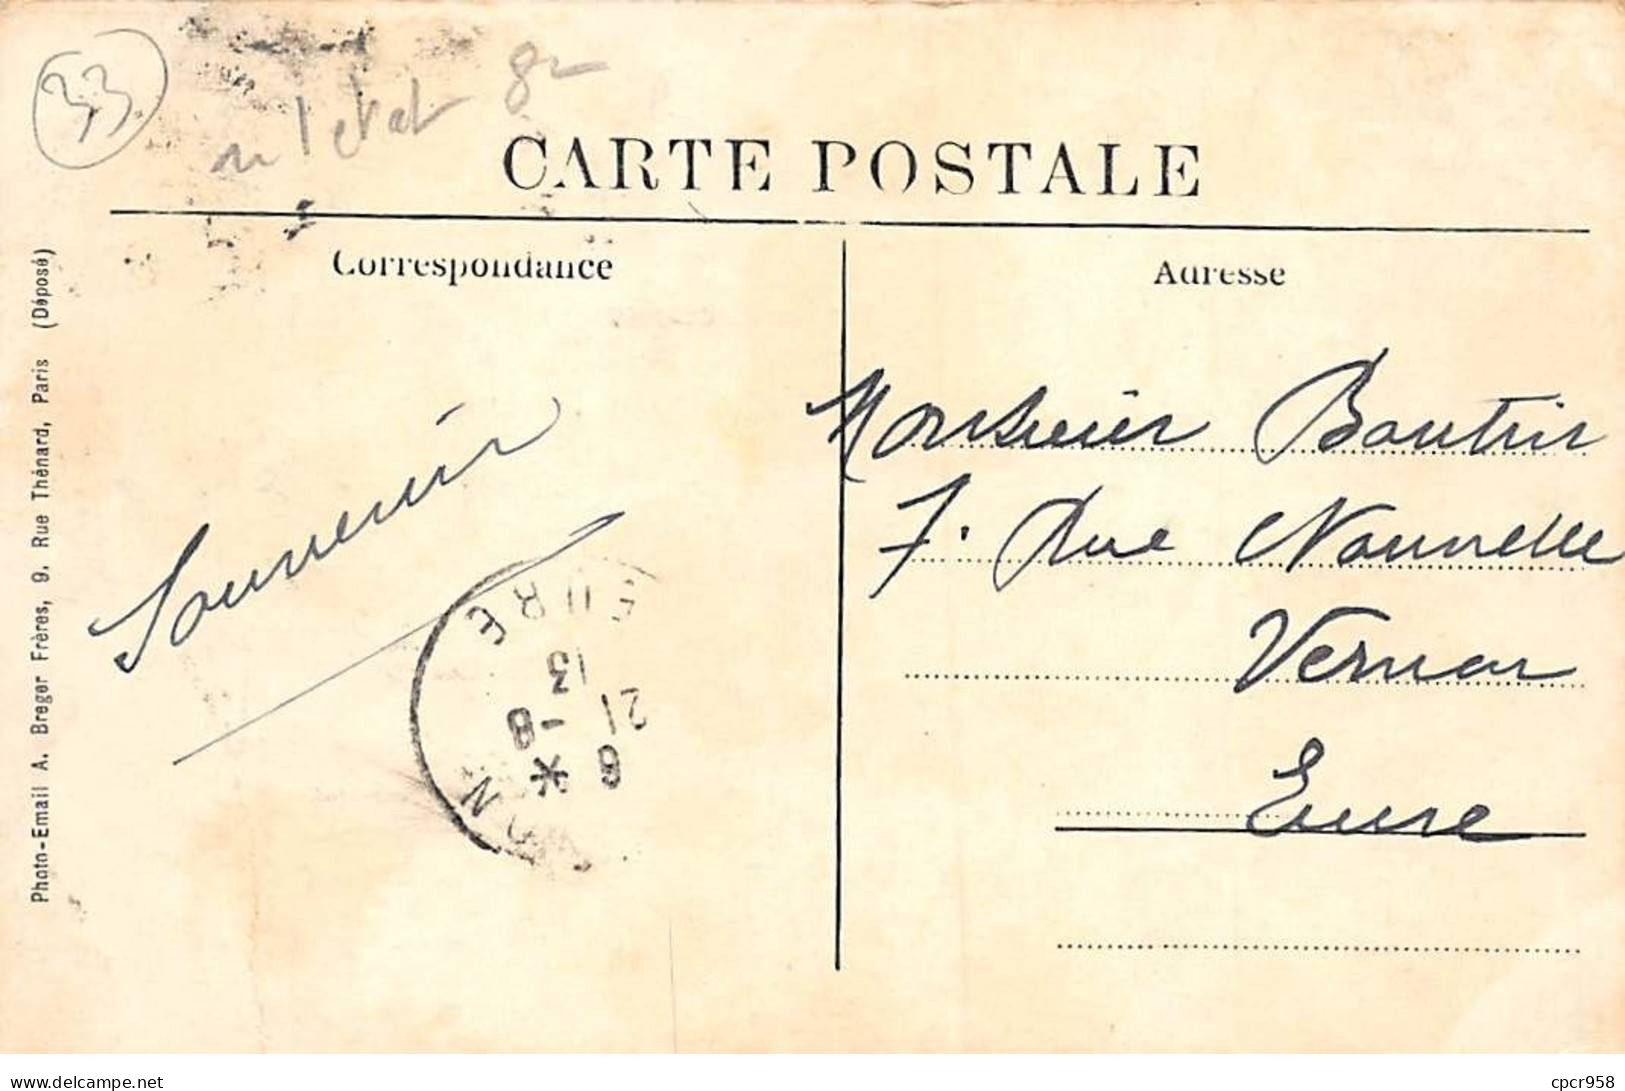 33
CARTE POSTALE
Correspondance
Adresse
Photo-Email A. Breger Frères, 9. Rue Thénard, Paris (Déposé)
Souvenir
EURE
13
21 -8
6 *
ON
Monsieur Boutin
7. Rue Nouvelle
Vernon
Eure
delcampe.net
cpcr958